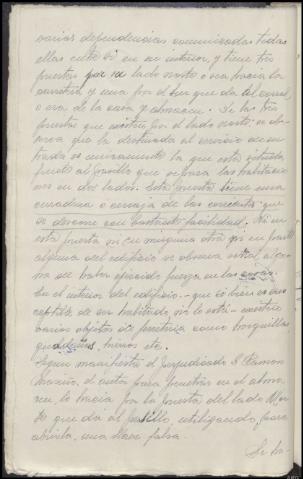 varias dependencias comunicadas todas
ellas entre si en su interior, y tiene tres
puertas por su lado norte o sea hacia la
carretera y una por el Sur que da al corral
o era de la casa y almacen. De las tres
puertas que existen por el lado norte se ob-
serva que la destinada al servicio de en-
trada es unicamente la que está situada
frente al pasillo que separa las habitacio-
nes en dos lados. Esta puerta tiene una
cerradura ó cerraja de las corrientes que
se descorre con bastante facilidad. Ni en
esta puerta ni en ninguna otra ni en parte
alguna del edificio se observa señal alguna
de haber ejercido fuerza en las cosas.
En el interior del edificio - que si bien es sus-
ceptible de ser habitado no lo está - existen
varios objetos de
varios etc.
Segun manifiesta el perjudicado D. Ramon
el autor para penetrar en el alma-
cen, lo hacia por la puerta del lado Nor-
te que da al pasillo, utilizando, para
abrirla, una llave falsa.
Se ha-